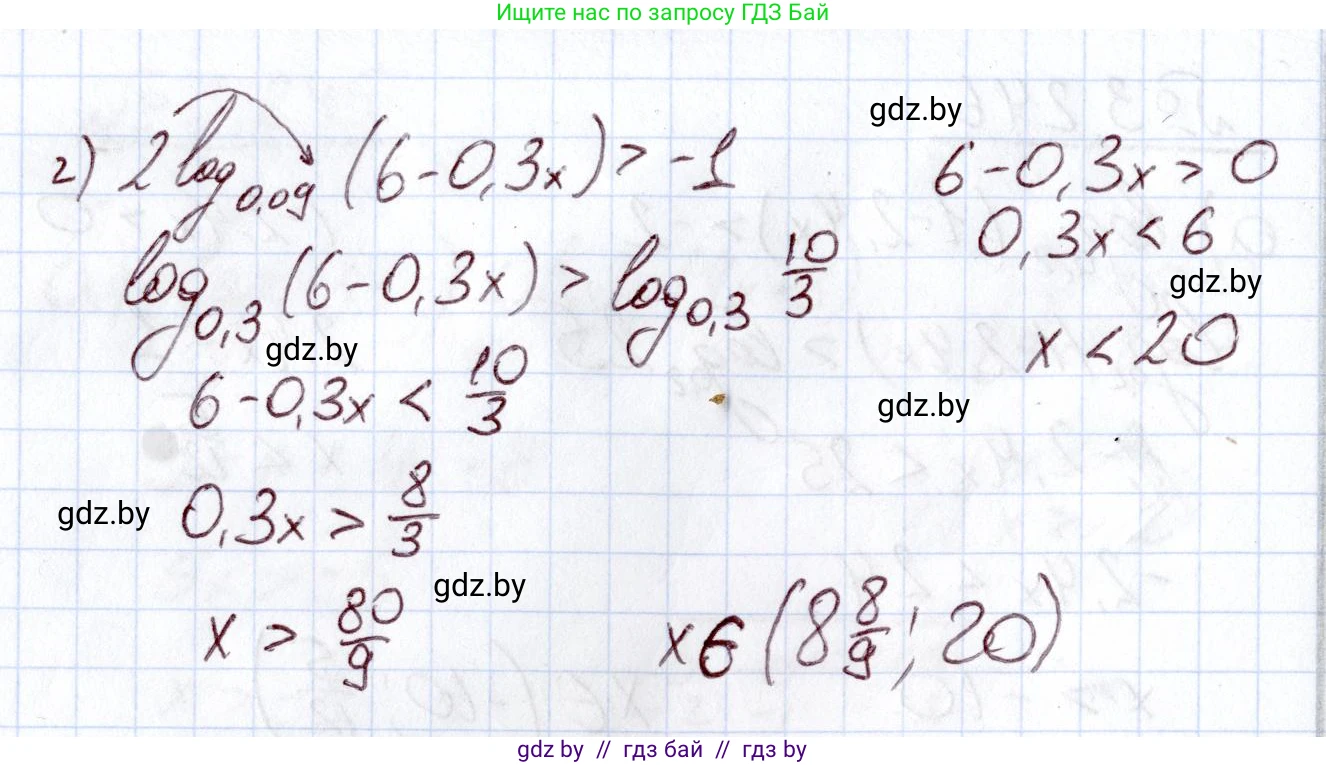 Ищите нас по запросу ГДЗ Бай
gdz.by
г) 2log_{0,09} (6-0,3x) > -1
6-0,3x > 0
0,3x < 6
gdz.by
log_{0,3} (6-0,3x) > log_{0,3} 10/3
x < 20
gdz.by
6-0,3x < 10/3
gdz.by
gdz.by
0,3x > 8/3
gdz.by
x > 80/9
x ∈ (8 8/9; 20)
gdz.by // гдз бай // гдз by